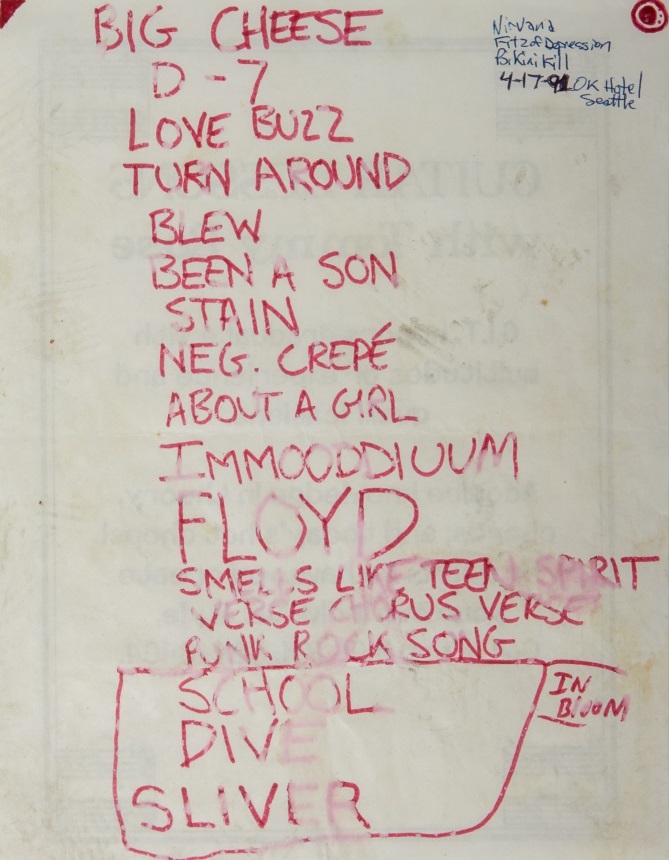 BIG CHEESE
D-7
LOVE BUZZ
TURN AROUND
BLEW
BEEN A SON
STAIN
NEG. CREPÉ
ABOUT A GIRL
IMMOODDIUUM
FLOYD
SMELLS LIKE TEEN SPIRIT
VERSE CHORUS VERSE
PUNK ROCK SONG
SCHOOL
DIVE
SLIVER
IN
BLOOM
Nirvana
Fitz of Depression
Bikini Kill
4-17-91 OK Hotel
Seattle
GUITAR
with